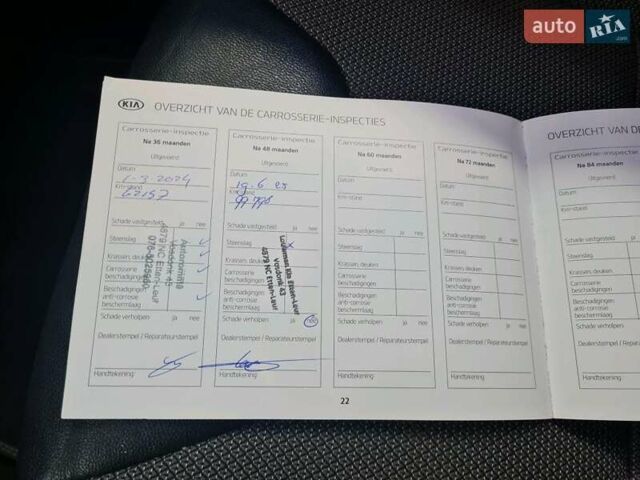 auto RIA .com
KIA OVERZICHT VAN DE CARROSSERIE-INSPECTIES
Carrosserie-inspectie
Na 36 maanden
(Uitgevoerd)
Datum
1-3 2024
Km-stand
62157
Schade vastgesteld ja nee
Steenslag
Krassen, deuken
Carrosserie
beschadigingen
Beschadigingen
anti-corrosie
beschermlaag
Schade verholpen ja nee
Dealerstempel / Reparateurstempel
Handtekening
4879 NC Etten-Leur
Carrosserie-inspectie
Na 48 maanden
(Uitgevoerd)
Datum
19-6 25
Km-stand
Schade vastgesteld ja nee
Steenslag
Krassen, deuken
Carrosserie
beschadigingen
Beschadigingen
anti-corrosie
beschermlaag
Schade verholpen ja nee
Dealerstempel / Reparateurstempel
Handtekening
Kia Etten-Leur
Vosdonk 43
4879 NC Etten-Leur
Carrosserie-inspectie
Na 60 maanden
(Uitgevoerd)
Datum
Km-stand
Schade vastgesteld ja nee
Steenslag
Krassen, deuken
Carrosserie
beschadigingen
Beschadigingen
anti-corrosie
beschermlaag
Schade verholpen ja nee
Dealerstempel / Reparateurstempel
Handtekening
Carrosserie-inspectie
Na 72 maanden
(Uitgevoerd)
Datum
Km-stand
Schade vastgesteld ja nee
Steenslag
Krassen, deuken
Carrosserie
beschadigingen
Beschadigingen
anti-corrosie
beschermlaag
Schade verholpen ja nee
Dealerstempel / Reparateurstempel
Handtekening
22
OVERZICHT VAN DE
Carrosserie-inspectie
Na 84 maanden
Datum
Km-stand
Schade vastgesteld
Steenslag
Krassen, deuken
Carrosserie
beschadigingen
Beschadigingen
anti-corrosie
beschermlaag
Schade verholpen
Dealerstempel / Repar
Handtekening